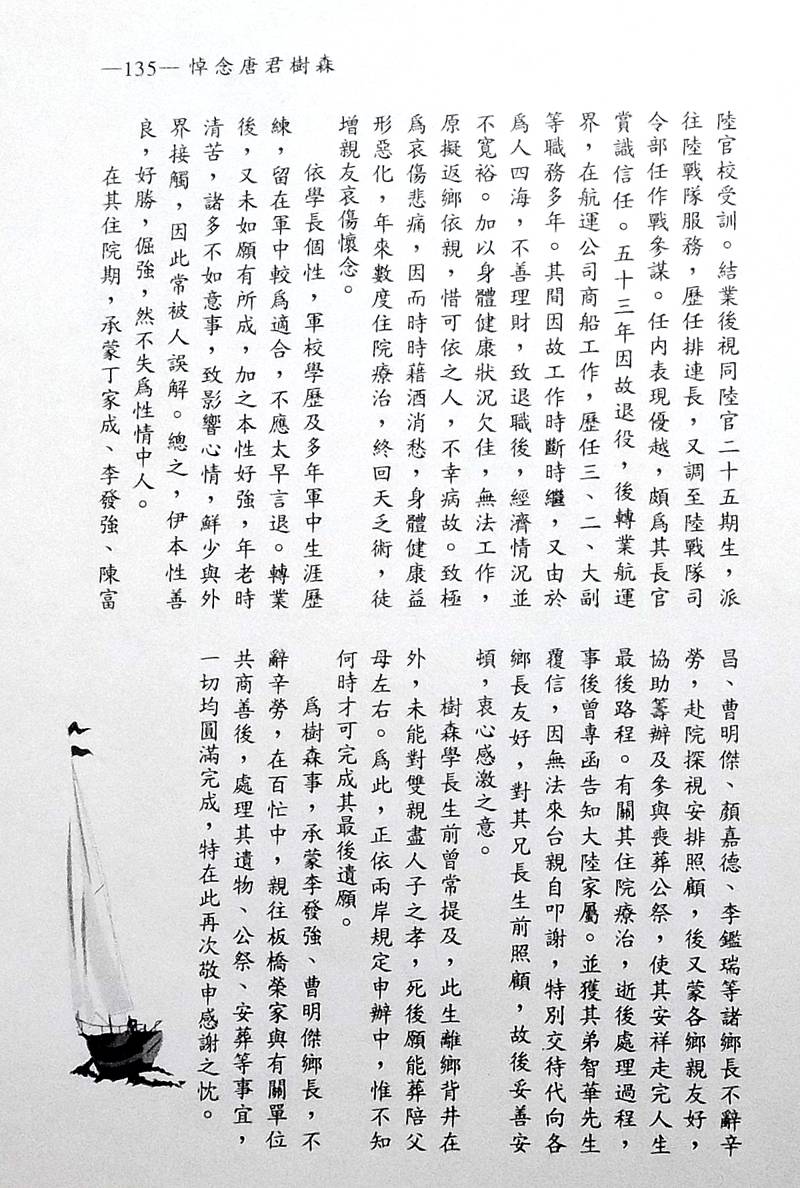 —135— 悼念唐君樹森
陸官校受訓。結業後視同陸官二十五期生，派
往陸戰隊服務，歷任排連長，又調至陸戰隊司
令部任作戰參謀。任內表現優越，頗爲其長官
賞識信任。五十三年因故退役，後轉業航運
界，在航運公司商船工作，歷任三、二、大副
等職務多年。其間因故工作時斷時繼，又由於
爲人四海，不善理財，致退職後，經濟情況並
不寬裕。加以身體健康狀況欠佳，無法工作，
原擬返鄉依親，惜可依之人，不幸病故。致極
爲哀傷悲痛，因而時時藉酒消愁，身體健康益
形惡化，年來數度住院療治，終回天乏術，徒
增親友哀傷懷念。
依學長個性，軍校學歷及多年軍中生涯歷
練，留在軍中較爲適合，不應太早言退。轉業
後，又未如願有所成，加之本性好強，年老時
清苦，諸多不如意事，致影響心情，鮮少與外
界接觸，因此常被人誤解。總之，伊本性善
良，好勝，倔強，然不失爲性情中人。
在其住院期，承蒙丁家成、李發強、陳富
昌、曹明傑、顏嘉德、李鑑瑞等諸鄉長不辭辛
勞，赴院探視安排照顧，後又蒙各鄉親友好，
協助籌辦及參與喪葬公祭，使其安祥走完人生
最後路程。有關其住院療治，逝後處理過程，
事後曾專函告知大陸家屬。並獲其弟智華先生
覆信，因無法來台親自叩謝，特別交待代向各
鄉長友好，對其兄長生前照顧，故後妥善安
頓，衷心感激之意。
樹森學長生前曾常提及，此生離鄉背井在
外，未能對雙親盡人子之孝，死後願能葬陪父
母左右。爲此，正依兩岸規定申辦中，惟不知
何時才可完成其最後遺願。
爲樹森事，承蒙李發強、曹明傑鄉長，不
辭辛勞，在百忙中，親往板橋榮家與有關單位
共商善後，處理其遺物、公祭、安葬等事宜，
一切均圓滿完成，特在此再次敬申感謝之忱。